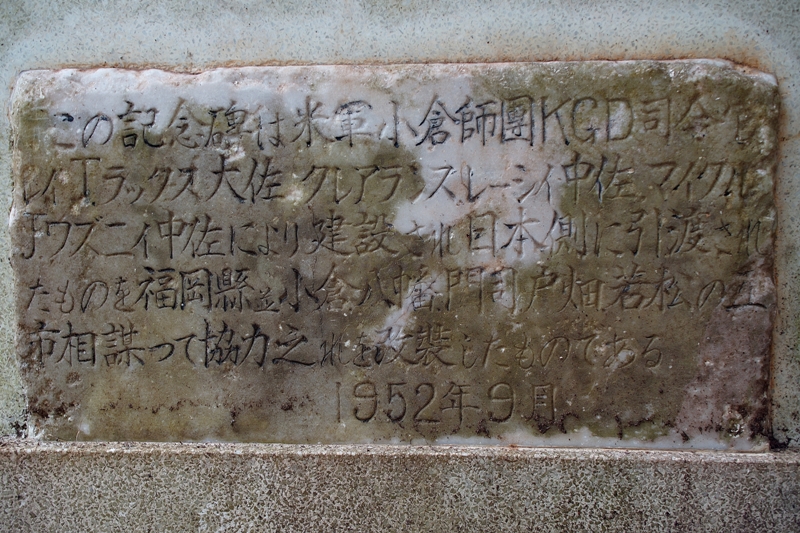 この記念碑は米軍小倉師團KGD司令官
レイTラックス大佐クレアランスレーシイ中佐マイクル
Jワズニイ中佐により建設され日本側に引渡され
たものを福岡縣並小倉八幡門司戸畑若松の五
市相謀って協力之れを改装したものである
1952年9月